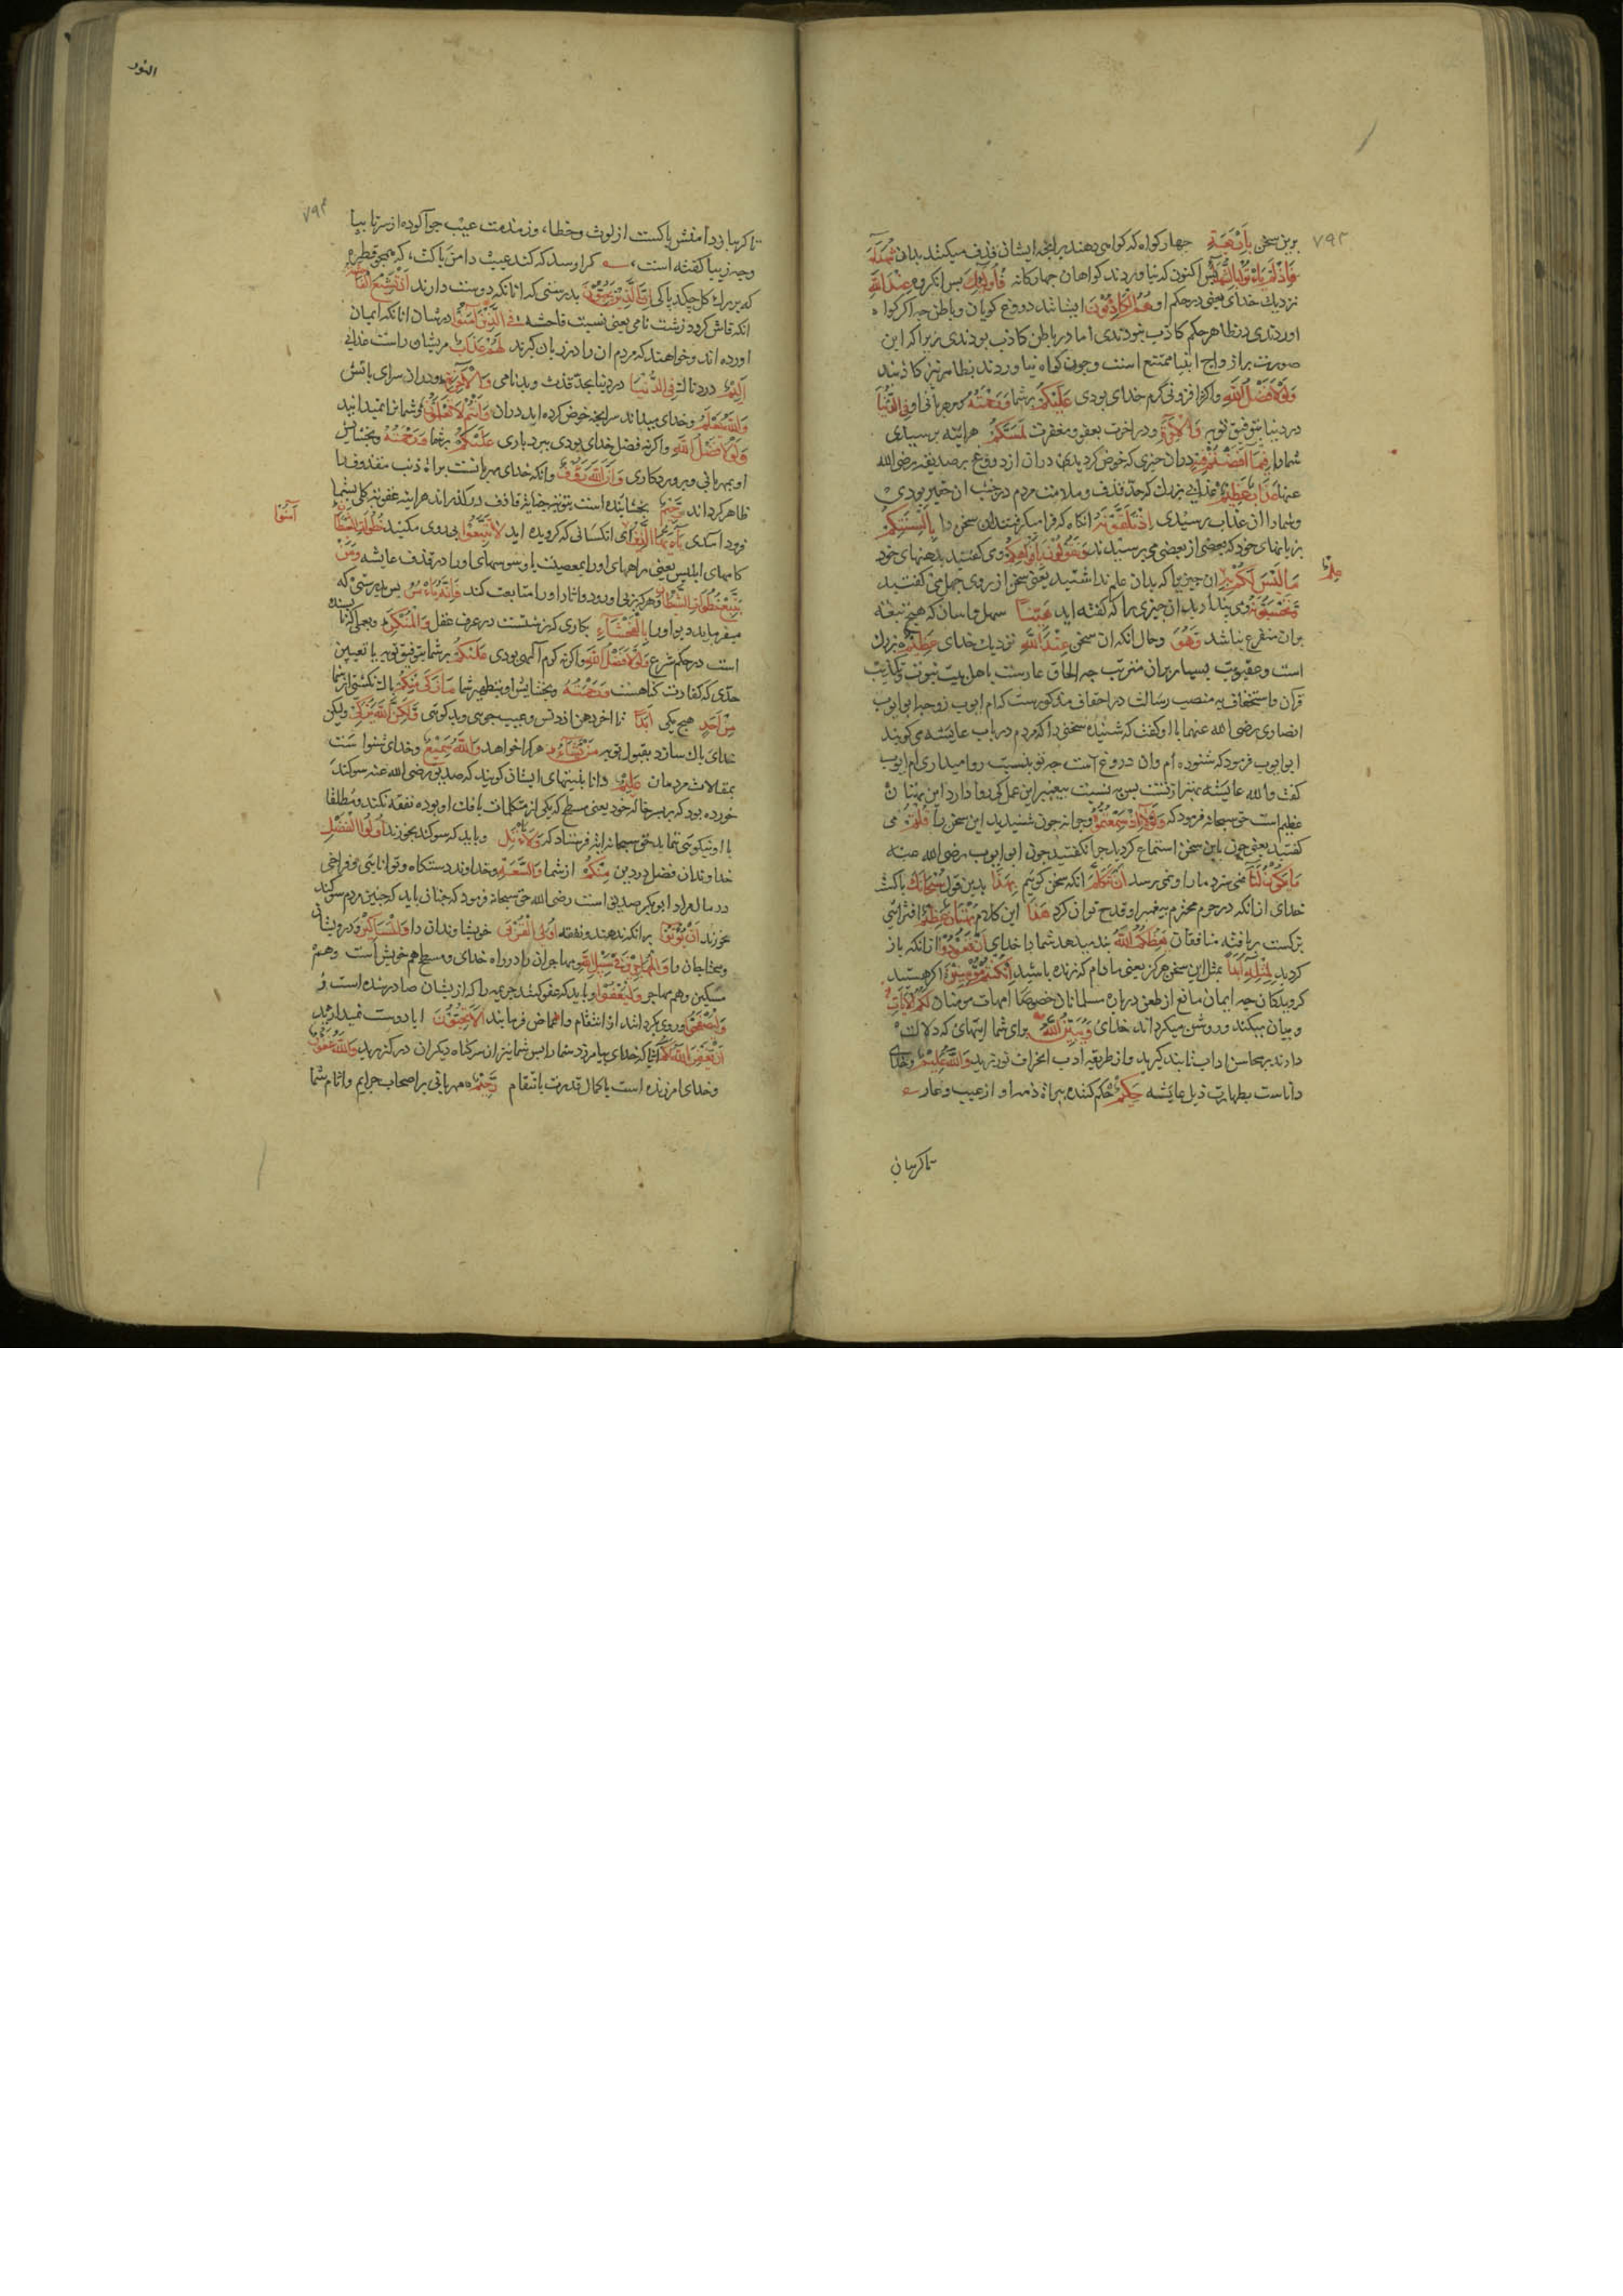 برین سخن بِاَرْبَعَةِ شُهَدَآءَ چهار کواه که کواهی دهند بر انچه ایشان قذف میکنند بدان
فَاِذْ لَمْ يَأْتُوا بِالشُّهَدَآءِ پس اکنون که نیاوردند کواهان چهارکانه فَاُولٰئِكَ پس انکروه عِنْدَ اللّٰهِ
نزدیك خدای یعنی در حکم او هُمُ الْكَاذِبُوْنَ ایشانند دروغ کویان و باطن چه اکر کواه
اوردندی در ظاهر حکم کاذب نبودندی اما در باطن کاذب بودندی زیرا که این
صورت بر ازواج انبیا ممتنع است و چون کواه نیاوردند بظاهر نیز کاذبند
وَلَوْلَا فَضْلُ اللّٰهِ و اکر نه افزونی کرم خدای بودی عَلَيْكُمْ بر شما وَرَحْمَتُهُ و مهربانی او فِى الدُّنْيَا
در دنیا بتوفیق توبه وَالْاٰخِرَةِ و در اخرت بعفو و مغفرت لَمَسَّكُمْ هراینه برسیدی
شما را فِيْمَا اَفَضْتُمْ فِيْهِ در ان چیزی که خوض کردید در ان از دروغ بر صدیقه رضی الله
عنها عَذَابٌ عَظِيْمٌ عذابی بزرك که حد قذف و ملامت مردم در جنب ان حقیر بودی
و شما را ان عذاب برسیدی اِذْ تَلَقَّوْنَهُ انکاه که فرا میکرفتند این سخن را بِاَلْسِنَتِكُمْ
بزبانهای خود که بعضی از بعضی می پرسیدند وَتَقُوْلُوْنَ بِاَفْوَاهِكُمْ و می کفتید بدهنهای خود
مَا لَيْسَ لَكُمْ بِهِ عِلْمٌ ان چیزیرا که بدان علم نداشتید یعنی سخن از روی جهل می کفتید
وَتَحْسَبُوْنَهُ و می پندارید ان چیزی را که کفته اید هَيِّنًا سهل و اسان که هیچ تبعه
بر ان متفرع نباشد وَهُوَ و حال انکه ان سخن عِنْدَ اللّٰهِ نزدیك خدای عَظِيْمٌ بزرك
است و عقوبت بسیار بر ان مترتب چه الحاق عارست باهل بیت نبوت و تکذیب
قران و استخفاف به منصب رسالت در احقاف مذکورست که ام ایوب زوجه ابو ایوب
انصاری رضی الله عنهما با او کفت که شنیده سخنی را که مردم در باب عایشه می کویند
ابو ایوب فرمود که شنوده ام وان دروغ است چه تو بنسبت روا میداری ام ایوب
کفت والله عایشه بهتر از تست پس به نسبت پیغمبر این عمل کی روا دارد این بهتان
عظیم است حق سبحانه فرمود که وَلَوْلَا اِذْ سَمِعْتُمُوْهُ و چرا نه چون شنیدید این سخن را قُلْتُمْ می
کفتید یعنی چون باین سخن استماع کردید چرا نکفتید چون ابو ایوب رضی الله عنه
مَا يَكُوْنُ لَنَا نمی سزد ما را و نمی رسد اَنْ نَتَكَلَّمَ انکه سخن کوییم بِهٰذَا بدین قول سُبْحَانَكَ پاکست
خدای از انکه در حرم محترم پیغمبر او قدح توان کرد هٰذَا این کلام بُهْتَانٌ عَظِيْمٌ افترائی
بزرکست بر بافته منافقان يَعِظُكُمُ اللّٰهُ پند میدهد شما را خدای اَنْ تَعُوْدُوْا از انکه باز
کردید لِمِثْلِهِ اَبَدًا بمثل این سخن هرکز یعنی مادام که زنده باشید اِنْ كُنْتُمْ مُؤْمِنِيْنَ اکر هستید
کرویدکان چه ایمان مانع از طعن درباره مسلمانان خصوصا امهات مومنان
و بیان میکند و روشن میکرداند خدای وَيُبَيِّنُ اللّٰهُ لَكُمُ الْاٰيَاتِ برای شما ایتهای که دلالت
دارند بر محاسن اداب تا پند کیرید و از طریقه ادب انحراف نورزید وَاللّٰهُ عَلِيْمٌ و خدای
داناست بطهارت ذیل عایشه حَكِيْمٌ حکم کننده ببراة ذمه او از عیب و عار
تا کریبان
٧٩٣
النور
٧٩٤
تا کریبان دامنش پاکست از لوث و خطا، وز مذمت عیب جو آلوده از سر تا بپا
وچه زیبا کفته است، کرا رسد که کند عیب دامن پاکت، که همچو قطره
که بر برك کل چکد پاکی اِنَّ الَّذِيْنَ يُحِبُّوْنَ بدرستی که انانکه دوست دارند اَنْ تَشِيْعَ الْفَاحِشَةُ
انکه فاش کردد زشت نامی یعنی نسبت فاحشه فِى الَّذِيْنَ اٰمَنُوْا درشان انانکه ایمان
اورده اند و خواهند که مردم ان را در زبان کیرند لَهُمْ عَذَابٌ مر ایشان راست عذابی
اَلِيْمٌ دردناك فِى الدُّنْيَا در دنیا بحد قذف و بدنامی وَالْاٰخِرَةِ و در ان سرای باتش
وَاللّٰهُ يَعْلَمُ و خدای میداند سر انچه خوض کرده اید در ان وَاَنْتُمْ لَا تَعْلَمُوْنَ و شما نمیدانید
وَلَوْلَا فَضْلُ اللّٰهِ و اکر نه فضل خدای بودی ببردباری عَلَيْكُمْ بر شما وَرَحْمَتُهُ و بخشایش
او بمهربانی و پروردکاری وَاَنَّ اللّٰهَ رَؤُفٌ وانکه خدای مهربانست براة ذنب مقذوف را
ظاهر کرداند رَحِيْمٌ بخشاینده است بتوبه جنایة قاذف درکذراند هراینه عقوبة کلی بشما
فرود امدی يَا اَيُّهَا الَّذِيْنَ اٰمَنُوْا ای انکسانی که کرویده اید لَا تَتَّبِعُوْا پی روی مکنید خُطُوَاتِ الشَّيْطَانِ
کامهای ابلیس یعنی راههای او را بمعصیت یا وسوسهای او را در قذف عایشه وَمَنْ
يَتَّبِعْ خُطُوَاتِ الشَّيْطَانِ و هرکه پی او رود و اثار او را متابعت کند فَاِنَّهُ يَأْمُرُ پس بدرستی که
میفرماید دیو او را بِالْفَحْشَآءِ بکاری که زشتست در عرف عقل وَالْمُنْكَرِ و بعملی که ناپسندیده
است در حکم شرع وَلَوْلَا فَضْلُ اللّٰهِ و اکر نه کرم الهی بودی عَلَيْكُمْ بر شما بتوفیق توبه یا تعیین
حدی که کفارت کناهست وَرَحْمَتُهُ و بخشایش او بتطهیر شما مَا زَكٰى مِنْكُمْ پاك نکشتی از شما
مِنْ اَحَدٍ هیچ یکی اَبَدًا تا اخر دهر از دنس و عیب جویی و بدکویی وَلٰكِنَّ اللّٰهَ يُزَكِّىْ ولیکن
خدای پاك سازد بقبول توبه مَنْ يَّشَآءُ هر کرا خواهد وَاللّٰهُ سَمِيْعٌ و خدای شنواست
بمقالات مردمان عَلِيْمٌ دانا بنیتهای ایشان کویند که صدیق رضی الله عنه سوکند
خورده بود که بر پسر خاله خود یعنی مسطح که یکی از متکلمان بافك او بوده نفقه نکند و مطلقا
با او نیکویی ننماید حق سبحانه ایة فرستاد که وَلَا يَأْتَلِ و باید که سوکند نخورند اُولُوا الْفَضْلِ
خداوندان فضل در دین مِنْكُمْ از شما وَالسَّعَةِ و خداوند دستکاه و توانایی و فراخی
در مال مراد ابو بکر صدیق است رضی الله حق سبحانه فرمود که چنان باید که چنین مردم سوکند
نخورند اَنْ يُؤْتُوْا بر انکه ندهند و نفقه اُولِى الْقُرْبٰى خویشاوندان را وَالْمَسَاكِيْنَ و درویشان
و محتاجان را وَالْمُهَاجِرِيْنَ فِىْ سَبِيْلِ اللّٰهِ و مهاجران را در راه خدای و مسطح هم خویش است و هم
مسکین و هم مهاجر وَلْيَعْفُوْا و باید که عفو کنند جریمه را که از ایشان صادر شده است و
وَلْيَصْفَحُوْا و روی بکردانند از انتقام و اغماض فرمایند اَلَا تُحِبُّوْنَ ایا دوست نمیدارید
اَنْ يَغْفِرَ اللّٰهُ لَكُمْ انرا که خدای بیامرزد شما را پس شما نیز از سر کناه دیکران درکذرید وَاللّٰهُ غَفُوْرٌ
و خدای امرزنده است با کمال قدرت بانتقام رَحِيْمٌ مهربانی بر اصحاب جرایم و اثام شما